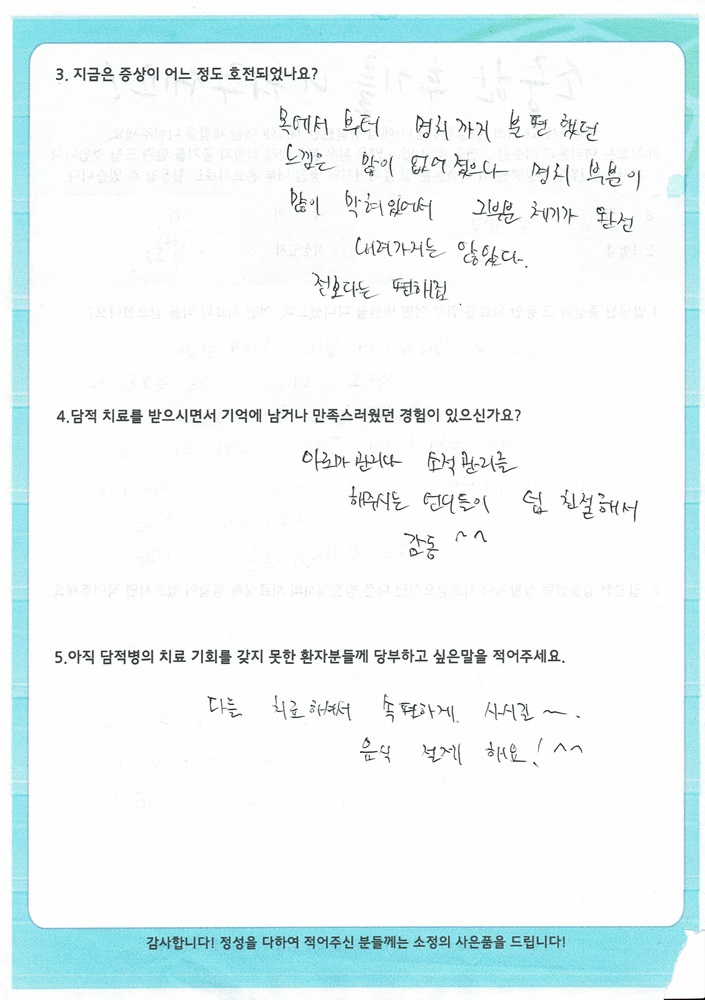 3. 지금은 증상이 어느 정도 호전되었나요?
목에서 부터 명치까지 불편했던
느낌은 많이 없어졌으나 명치 부분이
많이 막혀있어서 그부분 체기가 완전
내려가지는 않았다.
전보다는 편해짐.
4.담적 치료를 받으시면서 기억에 남거나 만족스러웠던 경험이 있으신가요?
아로마 관리나 소적관리를
해주시는 언니들이 넘 친절해서
감동 ^^
5.아직 담적병의 치료 기회를 갖지 못한 환자분들께 당부하고 싶은말을 적어주세요.
다들 치료하셔서 속편하게 사시길~.
음식 절제 해요! ^^
감사합니다! 정성을 다하여 적어주신 분들께는 소정의 사은품을 드립니다!